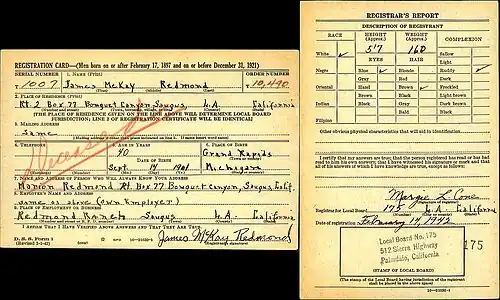 REGISTRATION CARD—(Men born on or after February 17, 1897 and on or before December 31, 1921)
SERIAL NUMBER 1. NAME (Print) ORDER NUMBER
1007 James McKay Redmond 10,490
(First) (Middle) (Last)
2. PLACE OF RESIDENCE (Print)
Rt. 2 Box 77 Bouquet Canyon, Saugus, L.A. California
(THE PLACE OF RESIDENCE GIVEN ON THE LINE ABOVE WILL DETERMINE LOCAL BOARD
JURISDICTION; LINE 2 OF REGISTRATION CERTIFICATE WILL BE IDENTICAL)
3. MAILING ADDRESS
Same
(Mailing address if other than place indicated on line 2. If same insert word same)
4. TELEPHONE 5. AGE IN YEARS 6. PLACE OF BIRTH
40 Grand Rapids
DATE OF BIRTH
Sept 14 1901 Michigan
Deceased
7. NAME AND ADDRESS OF PERSON WHO WILL ALWAYS KNOW YOUR ADDRESS
Marion Redmond Rt. Box 77 Bouquet Canyon, Saugus, Calif.
8. EMPLOYER'S NAME AND ADDRESS
same as above (own Employer)
9. PLACE OF EMPLOYMENT OR BUSINESS
Redmond Ranch Saugus L.A. California
I AFFIRM THAT I HAVE VERIFIED ABOVE ANSWERS AND THAT THEY ARE TRUE.
D. S. S. Form 1
James McKay Redmond
REGISTRAR'S REPORT
DESCRIPTION OF REGISTRANT
RACE HEIGHT (Approx.) WEIGHT (Approx.) COMPLEXION
White ✓ 5'7 160 Sallow
EYES HAIR Light
Negro Blue ✓ Blonde Ruddy ✓
Gray Red Dark
Oriental Hazel Brown ✓ Freckled
Brown Black Light brown
Indian Black Gray Dark brown
Bald Black
Filipino
Other obvious physical characteristics that will aid in identification
I certify that my answers are true; that the person registered has read or has had
read to him his own answers; that I have witnessed his signature or mark and that
all of his answers of which I have knowledge are true, except as follows:
Margie L. Cone
Registrar for Local Board 175 L.A. California
Date of registration February 14, 1942
Local Board No. 175
512 Sierra Highway
Palmdale, California
175
(STAMP OF LOCAL BOARD)
(The stamp of the Local Board having jurisdiction of the registrant